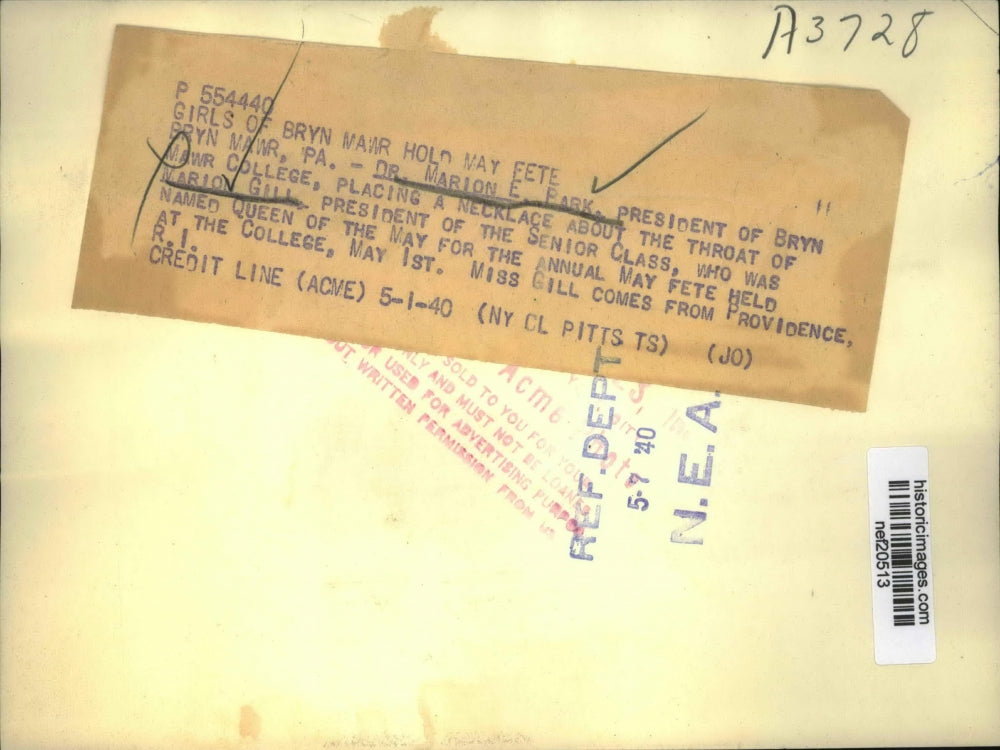 A3728
P 554440
GIRLS OF BRYN MAWR HOLD MAY FETE
BRYN MAWR, PA. – DR. MARION E. PARK, PRESIDENT OF BRYN
MAWR COLLEGE, PLACING A NECKLACE ABOUT THE THROAT OF
MARION GILL, PRESIDENT OF THE SENIOR CLASS, WHO WAS
NAMED QUEEN OF THE MAY FOR THE ANNUAL MAY FETE HELD
AT THE COLLEGE, MAY 1ST. MISS GILL COMES FROM PROVIDENCE,
R.I.
CREDIT LINE (ACME) 5-1-40 (NY CL PITTS TS) (JO)
SOLD TO YOU FOR YOUR
ONLY AND MUST NOT BE LOANED
OR USED FOR ADVERTISING PURPOS
OUT WRITTEN PERMISSION FROM US
Acme
REF. DEPT
5-7 '40
N.E.A.
historicimages.com
nef20513